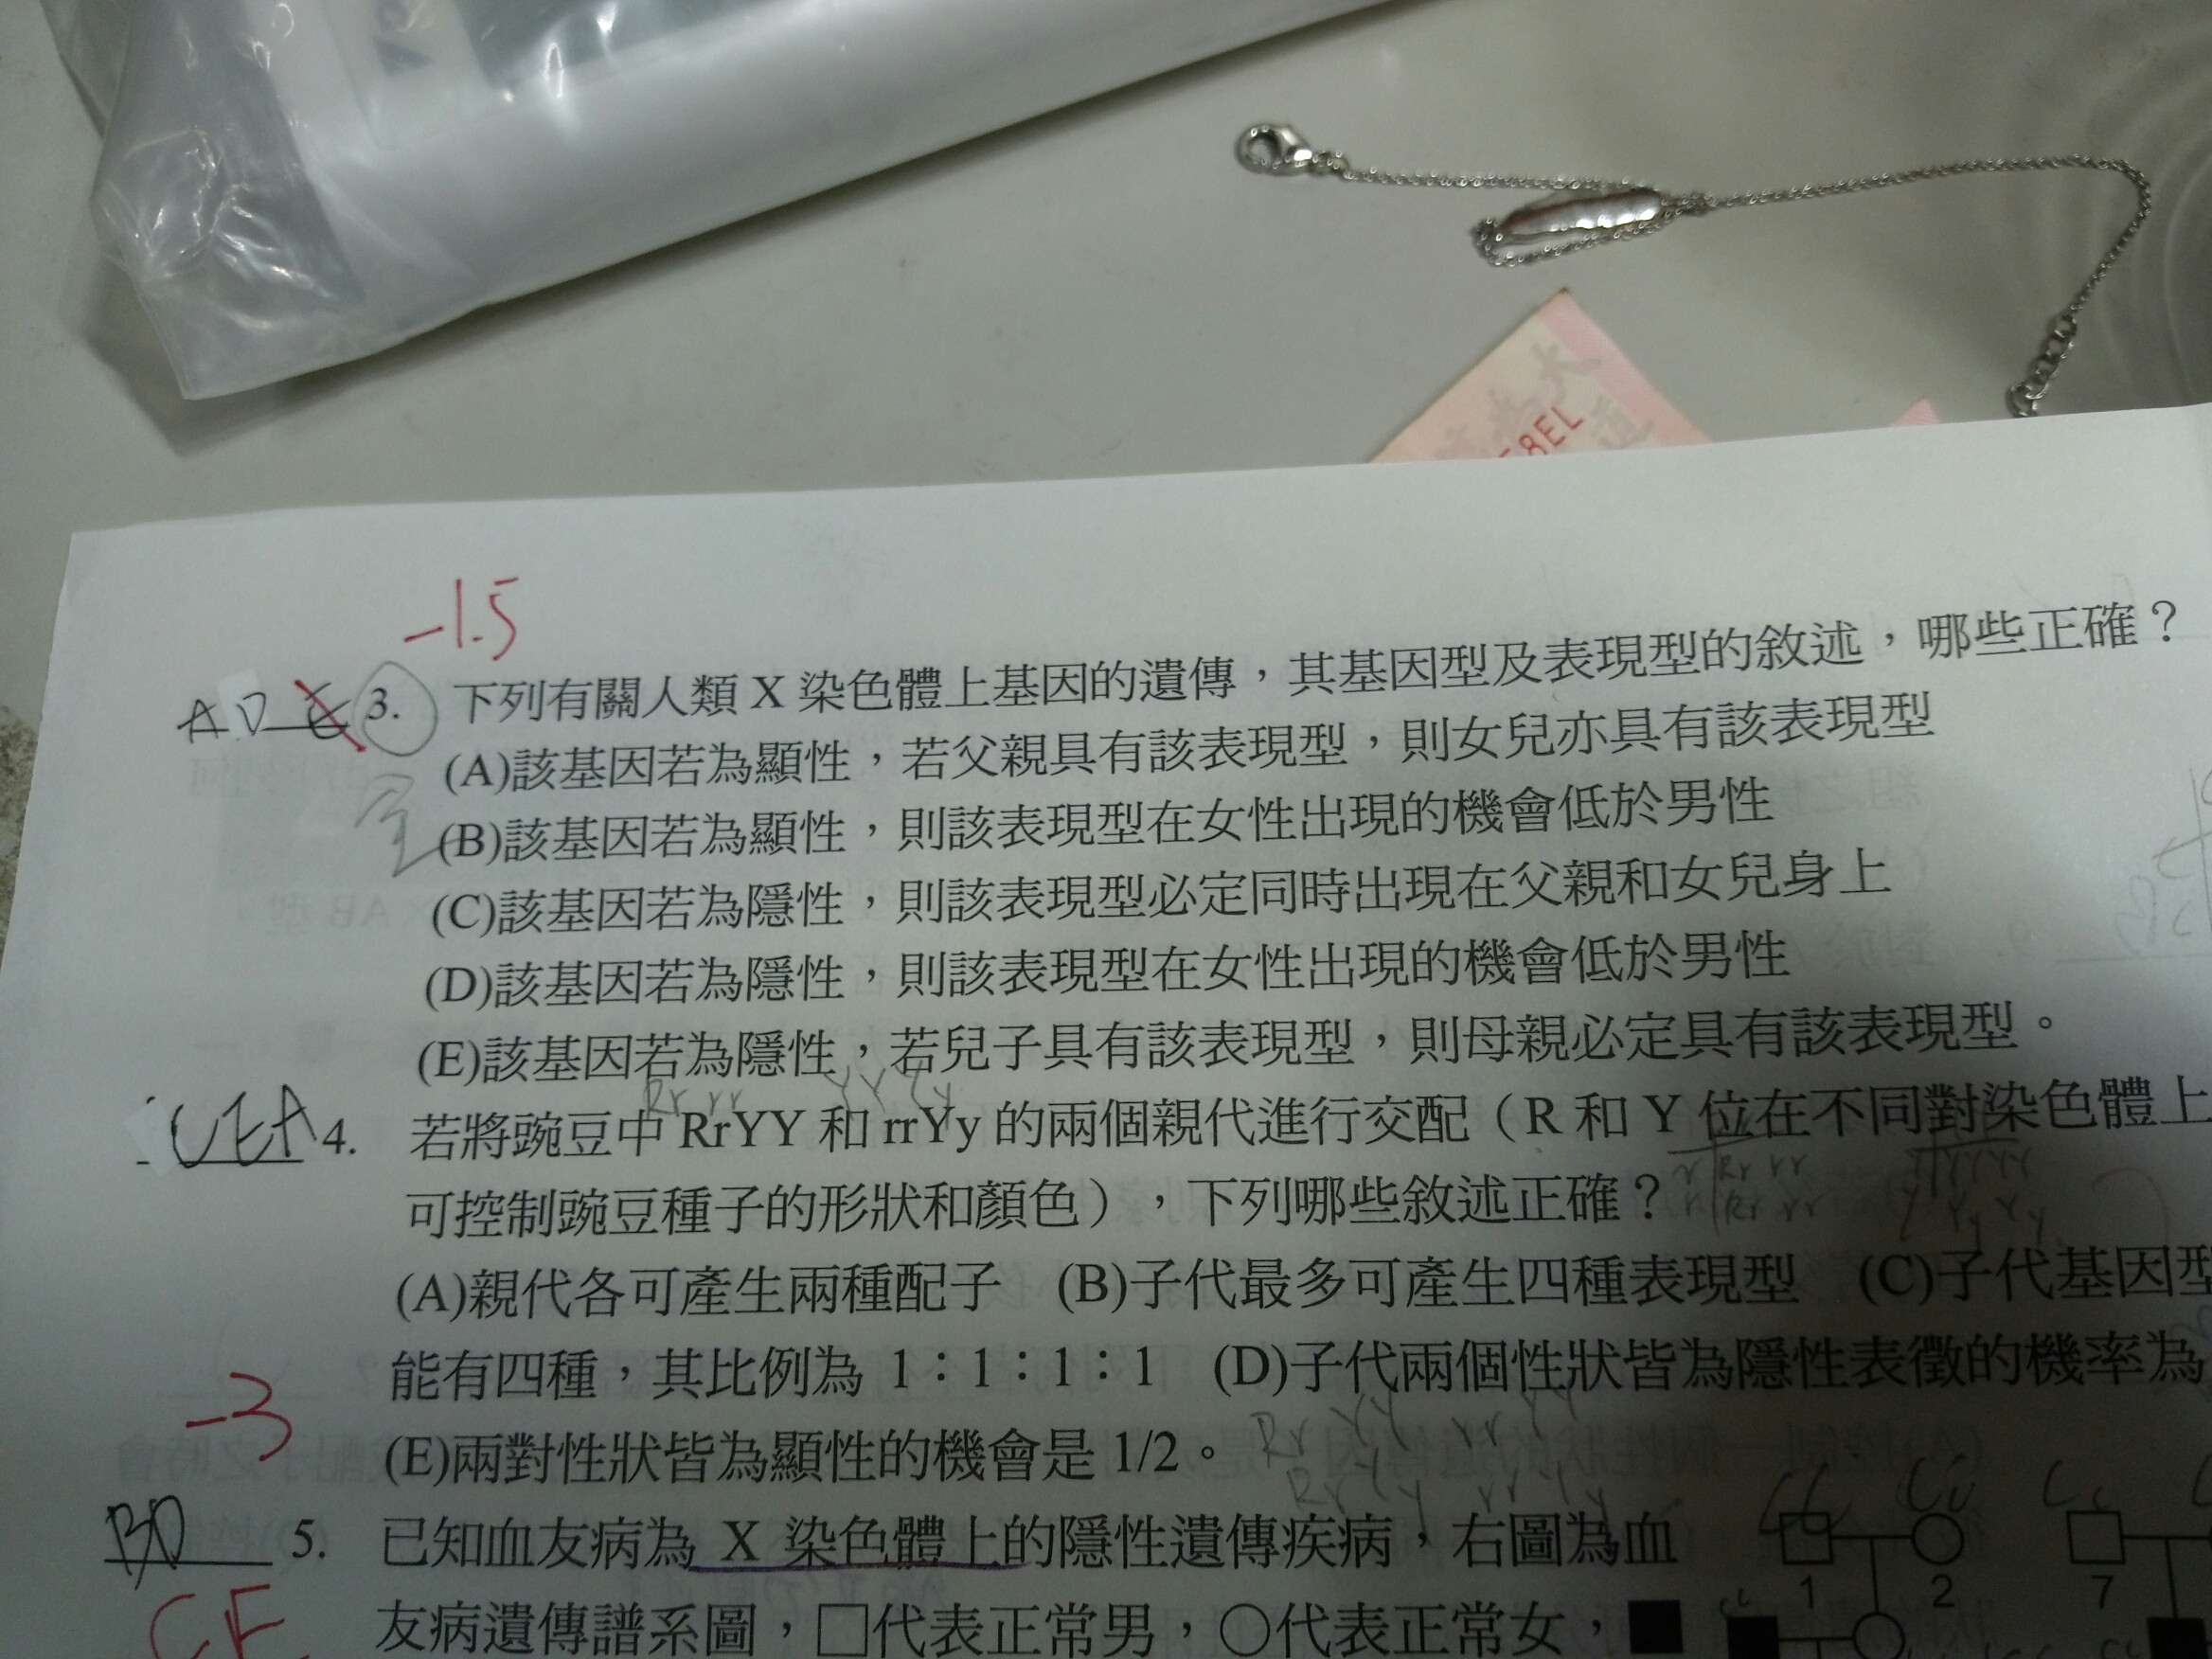 大
道
58EL
-1.5
AD 3. 下列有關人類 X 染色體上基因的遺傳，其基因型及表現型的敘述，哪些正確？
(A)該基因若為顯性，若父親具有該表現型，則女兒亦具有該表現型
(B)該基因若為顯性，則該表現型在女性出現的機會低於男性
(C)該基因若為隱性，則該表現型必定同時出現在父親和女兒身上
(D)該基因若為隱性，則該表現型在女性出現的機會低於男性
(E)該基因若為隱性，若兒子具有該表現型，則母親必定具有該表現型。
Rr rr YY Yy
CEA 4. 若將豌豆中 RrYY 和 rrYy 的兩個親代進行交配（R 和 Y 位在不同對染色體上
可控制豌豆種子的形狀和顏色），下列哪些敘述正確？
(A)親代各可產生兩種配子 (B)子代最多可產生四種表現型 (C)子代基因型
能有四種，其比例為 1：1：1：1 (D)子代兩個性狀皆為隱性表徵的機率為
-3
(E)兩對性狀皆為顯性的機會是 1/2。
Rr YY rr YY
Rr Yy rr Yy
BD 5. 已知血友病為 X 染色體上的隱性遺傳疾病，右圖為血
1 2 7
CE
友病遺傳譜系圖，□代表正常男，○代表正常女，■